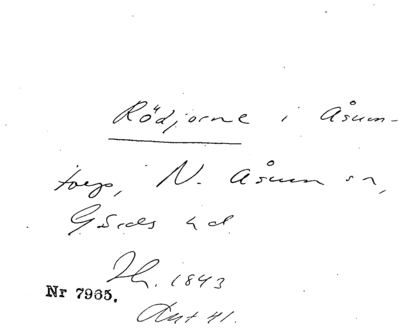 Rödjorne i Åsum-
torp, N. Åsum sn,
Gärds hd
Th. 1843
Nr 7965.
Ant 41.